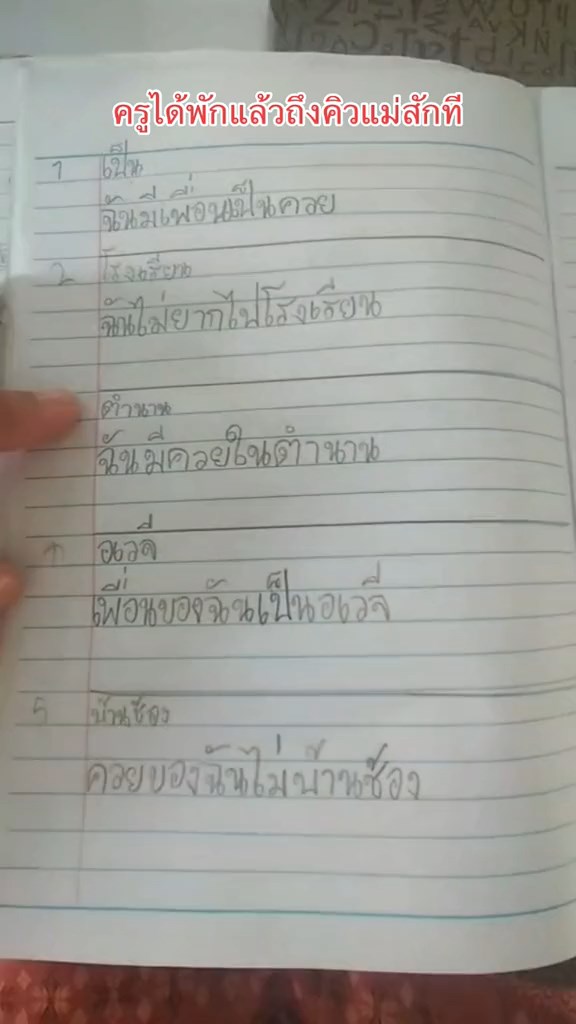 ครูได้พักแล้วถึงคิวแม่สักที
1 เป็น
ฉันมีเพื่อนเป็นควย
2 โรงเรียน
ฉันไม่ยากไปโรงเรียน
ตำนาน
ฉันมีควยในตำนาน
อเวจี
เพื่อนของฉันเป็นอเวจี
5 บ้านช้อง
ควยของฉันไม่บ้านช้อง